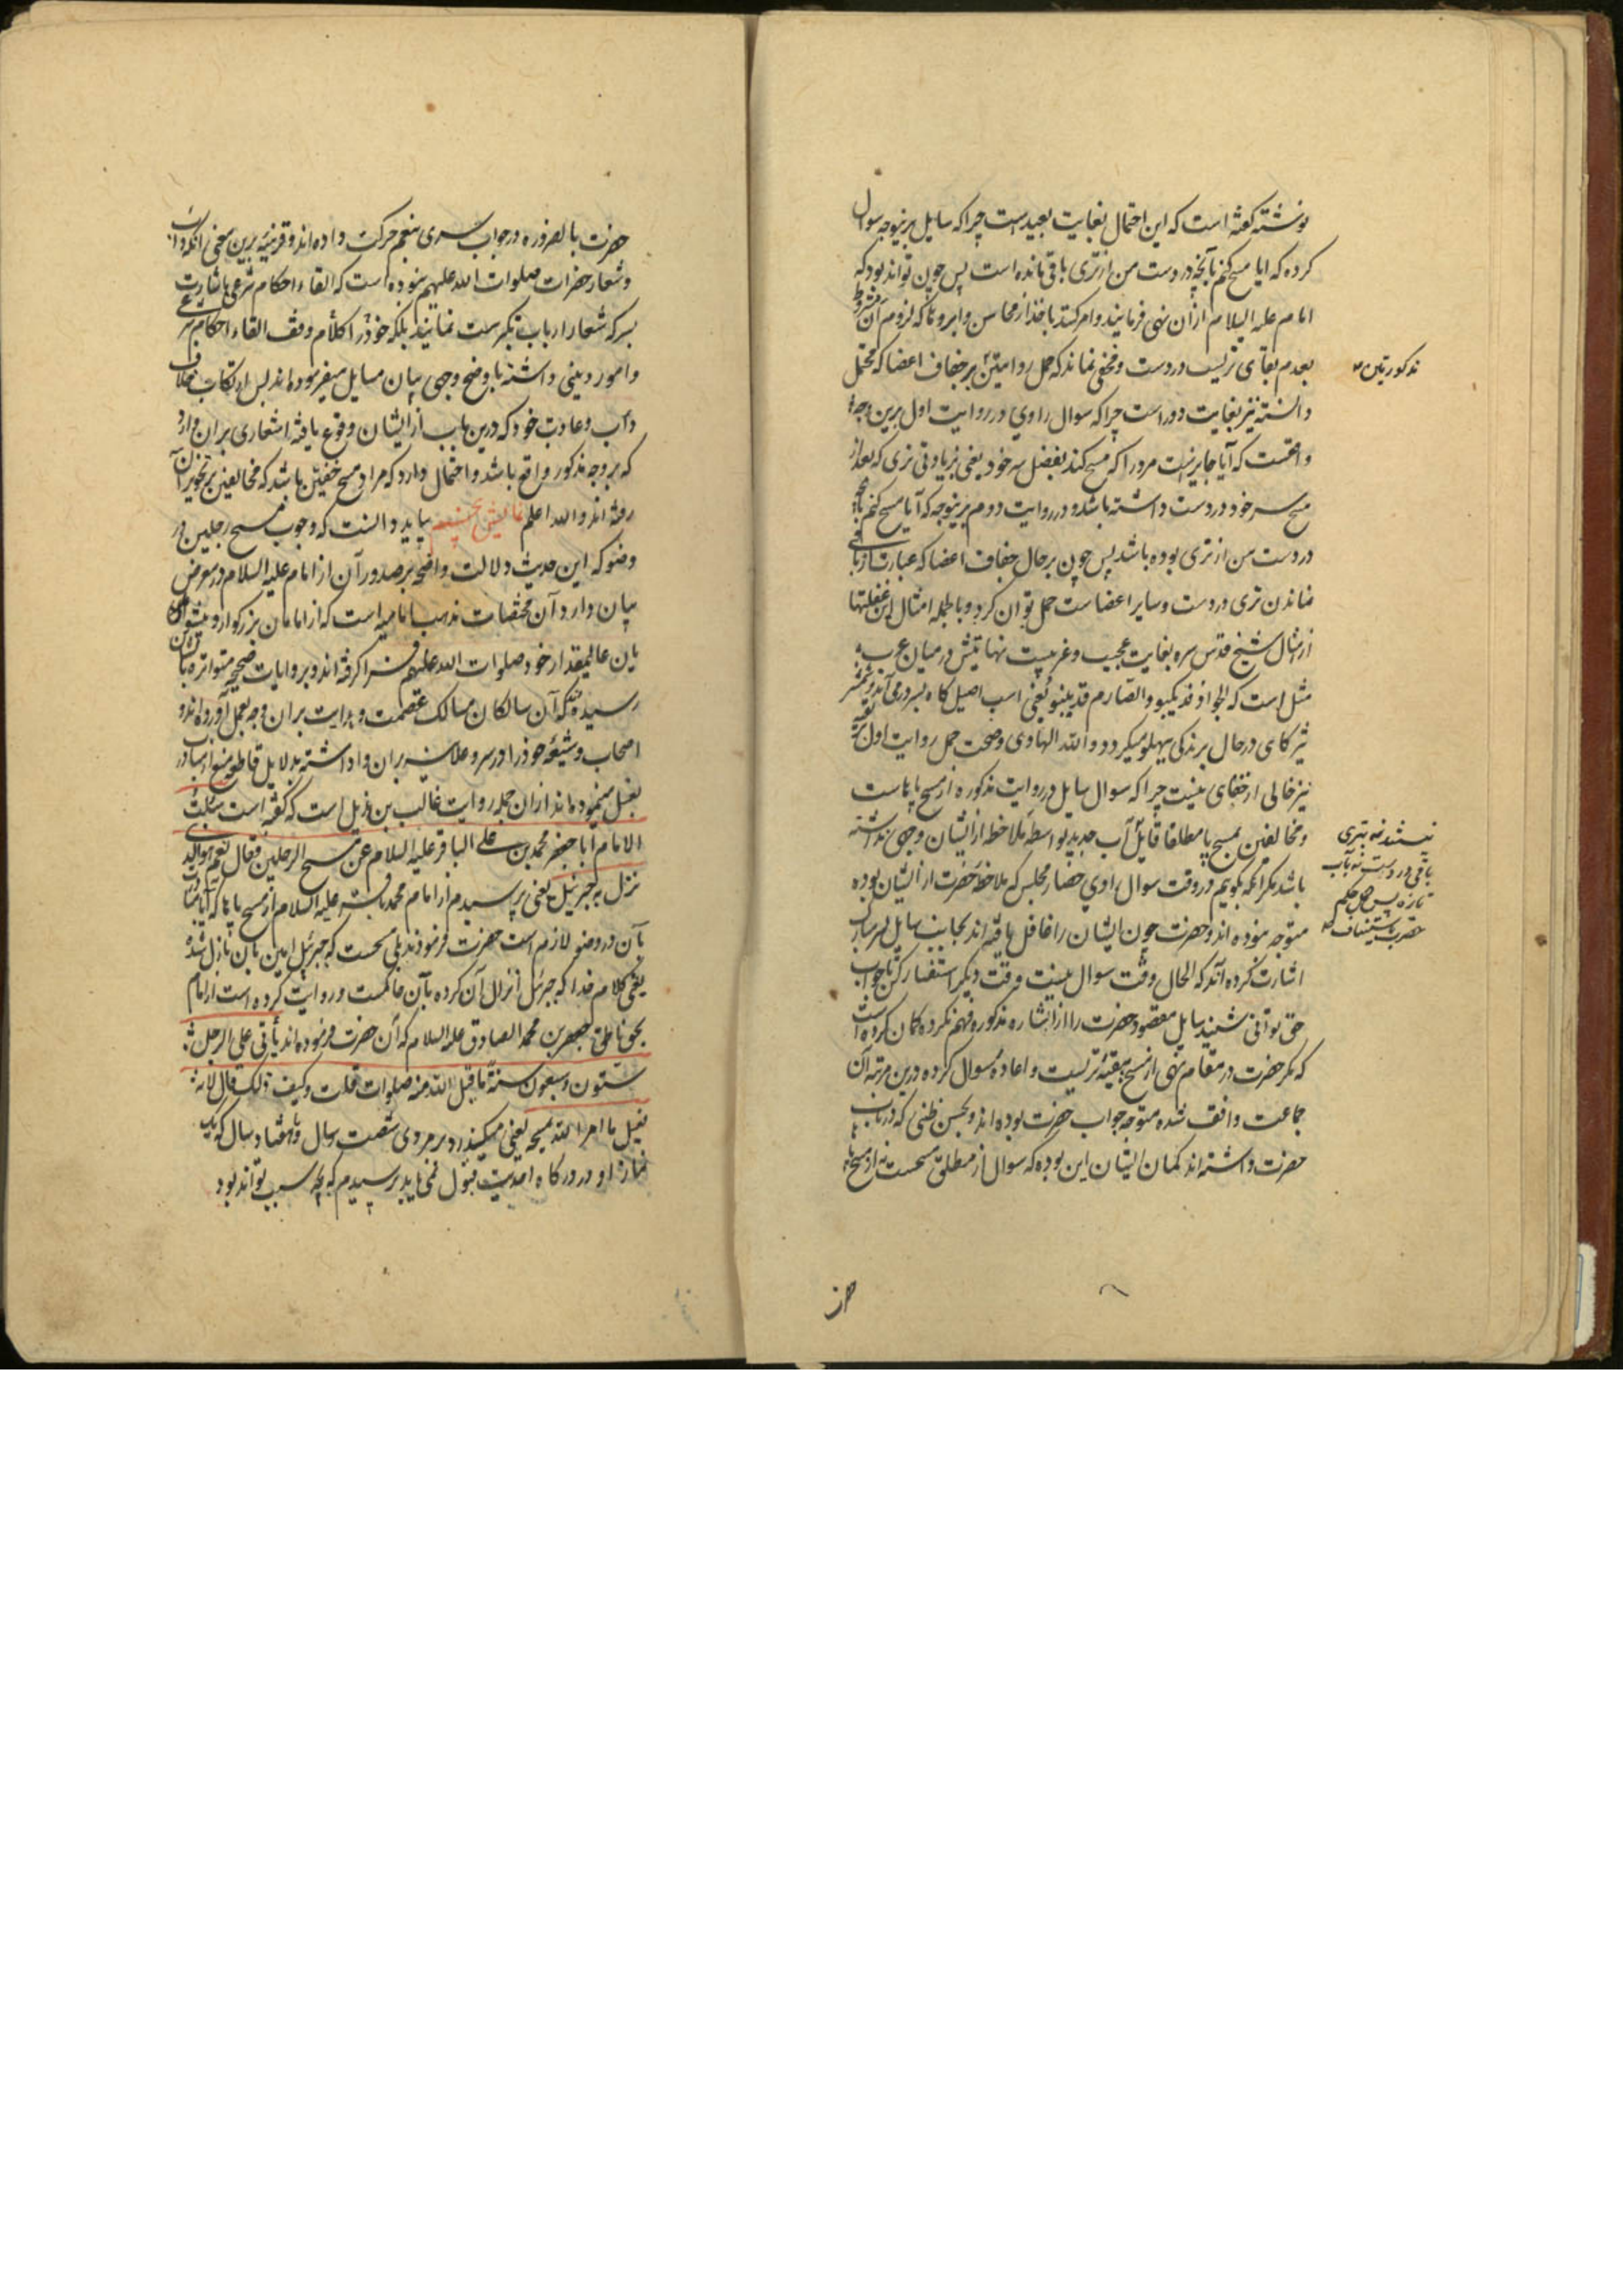 نوشته گفته است که این احتمال بغایت بعید است چرا که سایل برینوجه سوال
کرده که ایا مسح کنم بآنچه در دست من از تری باقی مانده است پس چون تواند بود که
امام علیه السلام از آن نهی فرمایند و امر کنند باخذ از محاسن و ابرو با آنکه لزوم آن مشروط
بعدم بقای تریست در دست و مخفی نماند که حمل روایتین بر جفاف اعضا که محتمل
مذکورتین
دانسته نیز بغایت دور است چرا که سوال راوی در روایت اول برین وجه
واقعست که آیا جایز نیست مرد را که مسح کند بفضل سر خود یعنی بزیادتی تری که بعد از
مسح سر خود در دست داشته باشد و در روایت دوم برینوجه که آیا مسح کنم بآنچه
در دست من از تری بوده باشد پس چون بر حال جفاف اعضا که عبارت از باقی
نماندن تری در دست و سایر اعضاست حمل توان کرد و بالجمله امثال این غفلتها
از مثال شیخ قدس سره بغایت عجیب و غریبست نهایتش در میان عرب
مثل است که الجواد قد یکبو و الصارم قد ینبو یعنی اسب اصیل گاه بسر درمی آید و شمشیر
تیز گاهی در حال برندگی بپهلو میگردد و الله الهادی و صحت حمل روایت اول بر تقیه
نیز خالی از خفای نیست چرا که سوال سایل در روایت مذکوره از مسح پاهاست
و مخالفین بمسح پا مطلقا قایل آب جدید بواسطه ملاحظه از ایشان وجهی نداشته
نیستند نه بتری
باقی در دست نه بآب
تازه پس حکم
حضرت باستیناف
باشد مگر آنکه بگوییم در وقت سوال راوی حضار مجلس که ملاحظه حضرت از ایشان بوده
متوجه نبوده اند و حضرت چون ایشان را غافل یافته اند بجانب سایل بسر مبارک
اشارت کرده اند که الحال وقت سوال نیست وقت دیگر استفسار کن تا جواب
حق توانی شنید سایل مقصود حضرت را از اشاره مذکوره فهم نکرده گمان کرده است
که مگر حضرت در مقام نهی از مسح ببقیه تریست و اعاده سوال کرده درین مرتبه آن
جماعت واقف شده متوجه جواب حضرت بوده اند و بحسن ظنی که در باب
حضرت داشته اند گمان ایشان این بوده که سوال از مطلق مسحست نه از مسح پا
حضرت بالضروره در جواب سری بنعم حرکت داده اند و قرینه برین معنی آنکه داب
و شعار حضرات صلوات الله علیهم نبوده است که القاء احکام شرعی باشارت
سر که شعار ارباب تکبرست نمایند بلکه خود را کلام وقف القاء احکام شرع
و امور دینی داشته باوضح وجهی بیان مسایل میفرموده اند پس ارتکاب خلاف
داب و عادت خود که درین باب از ایشان وقوع یافته اشعاری بر آن دارد
که بر وجه مذکور واقع باشد و احتمال دارد که مراد مسح خفین باشد که مخالفین بر تجویز آن
رفته اند و الله اعلم بباید دانست که وجوب مسح رجلین در
وضو که این حدیث دلالت واضحه بر صدور آن از امام علیه السلام در معرض
بیان دارد و آن مختصات مذهب امامیه است که از امامان بزرگوار و پیشوایان
عالیمقدار خود صلوات الله علیهم فرا گرفته اند و بروایات صحیحه متواتره بایشان
رسیده که آن سالکان مسالک عصمت و هدایت بر آن وجه بعمل آورده اند و
اصحاب و شیعه خود را در سر و علانیه بر آن واداشته بدلایل قاطع منع از مبادرت
بغسل مینموده اند از آن جمله روایت غالب بن هذیل است که گفته است سألت
الامام ابا جعفر محمد بن علی الباقر علیه السلام عن مسح الرجلین فقال نعم هو الذی
نزل به جبرئیل یعنی پرسیدم از امام محمد باقر علیه السلام از مسح پاها که آیا اتیان
بآن در وضو لازم است حضرت فرمودند بلی مسحست که جبرئیل امین بآن نازل شده
یعنی کلام خدا که جبرئیل انزال آن کرده بآن حاکمست و روایت کرده است از امام
بحق ناطق جعفر بن محمد الصادق علیه السلام که آن حضرت فرموده اند یأتی علی الرجل
ستون و سبعون سنة ما قبل الله منه صلوات قلت و کیف ذلک قال لانه
یغسل ما امر الله بمسحه یعنی میگذرد بر مردی شصت سال و یا هفتاد سال که یک
نماز او در درگاه احدیت قبول نمی یابد پرسیدم که بچه سبب تواند بود